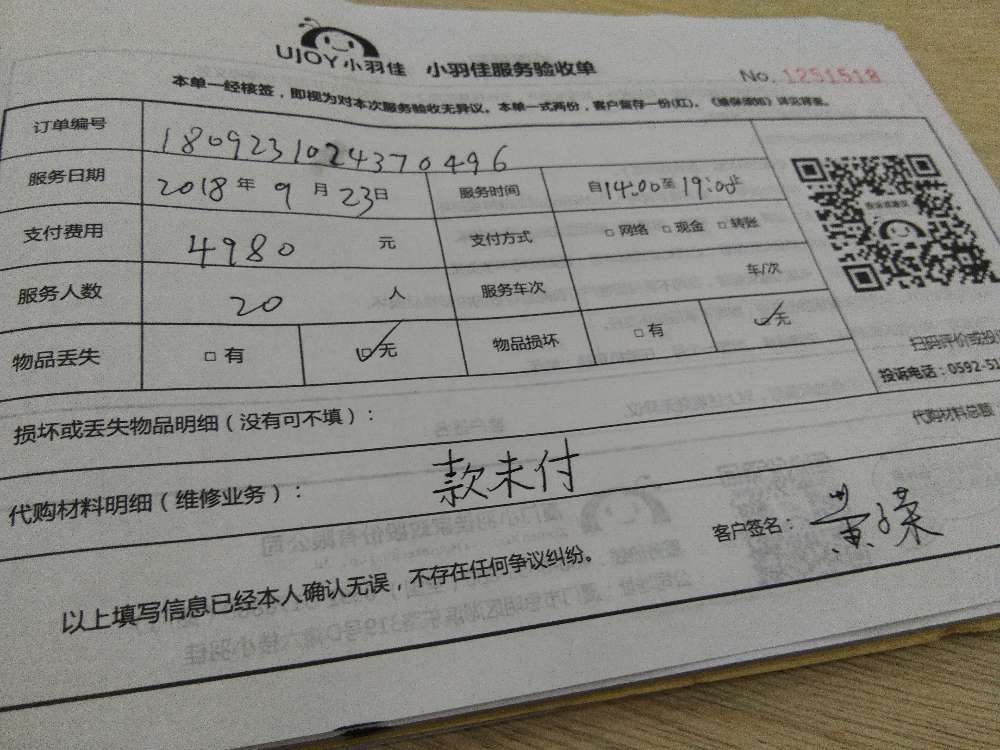 UJOY小羽佳 小羽佳服务验收单
No. 1251518
本单一经核签，即视为对本次服务验收无异议。本单一式两份，客户留存一份(红)。《维保须知》详见背面。
订单编号 1809231024370496
服务日期 2018年9月23日 服务时间 自14:00至19:00止
支付费用 4980 元 支付方式 □网络 □现金 □转账
服务人数 20 人 服务车次 车/次
物品丢失 □有 ☑无 物品损坏 □有 ☑无
扫码评价或投
投诉电话：0592-51
损坏或丢失物品明细（没有可不填）：
代购材料总额
代购材料明细（维修业务）： 款未付
客户签名：
以上填写信息已经本人确认无误，不存在任何争议纠纷。